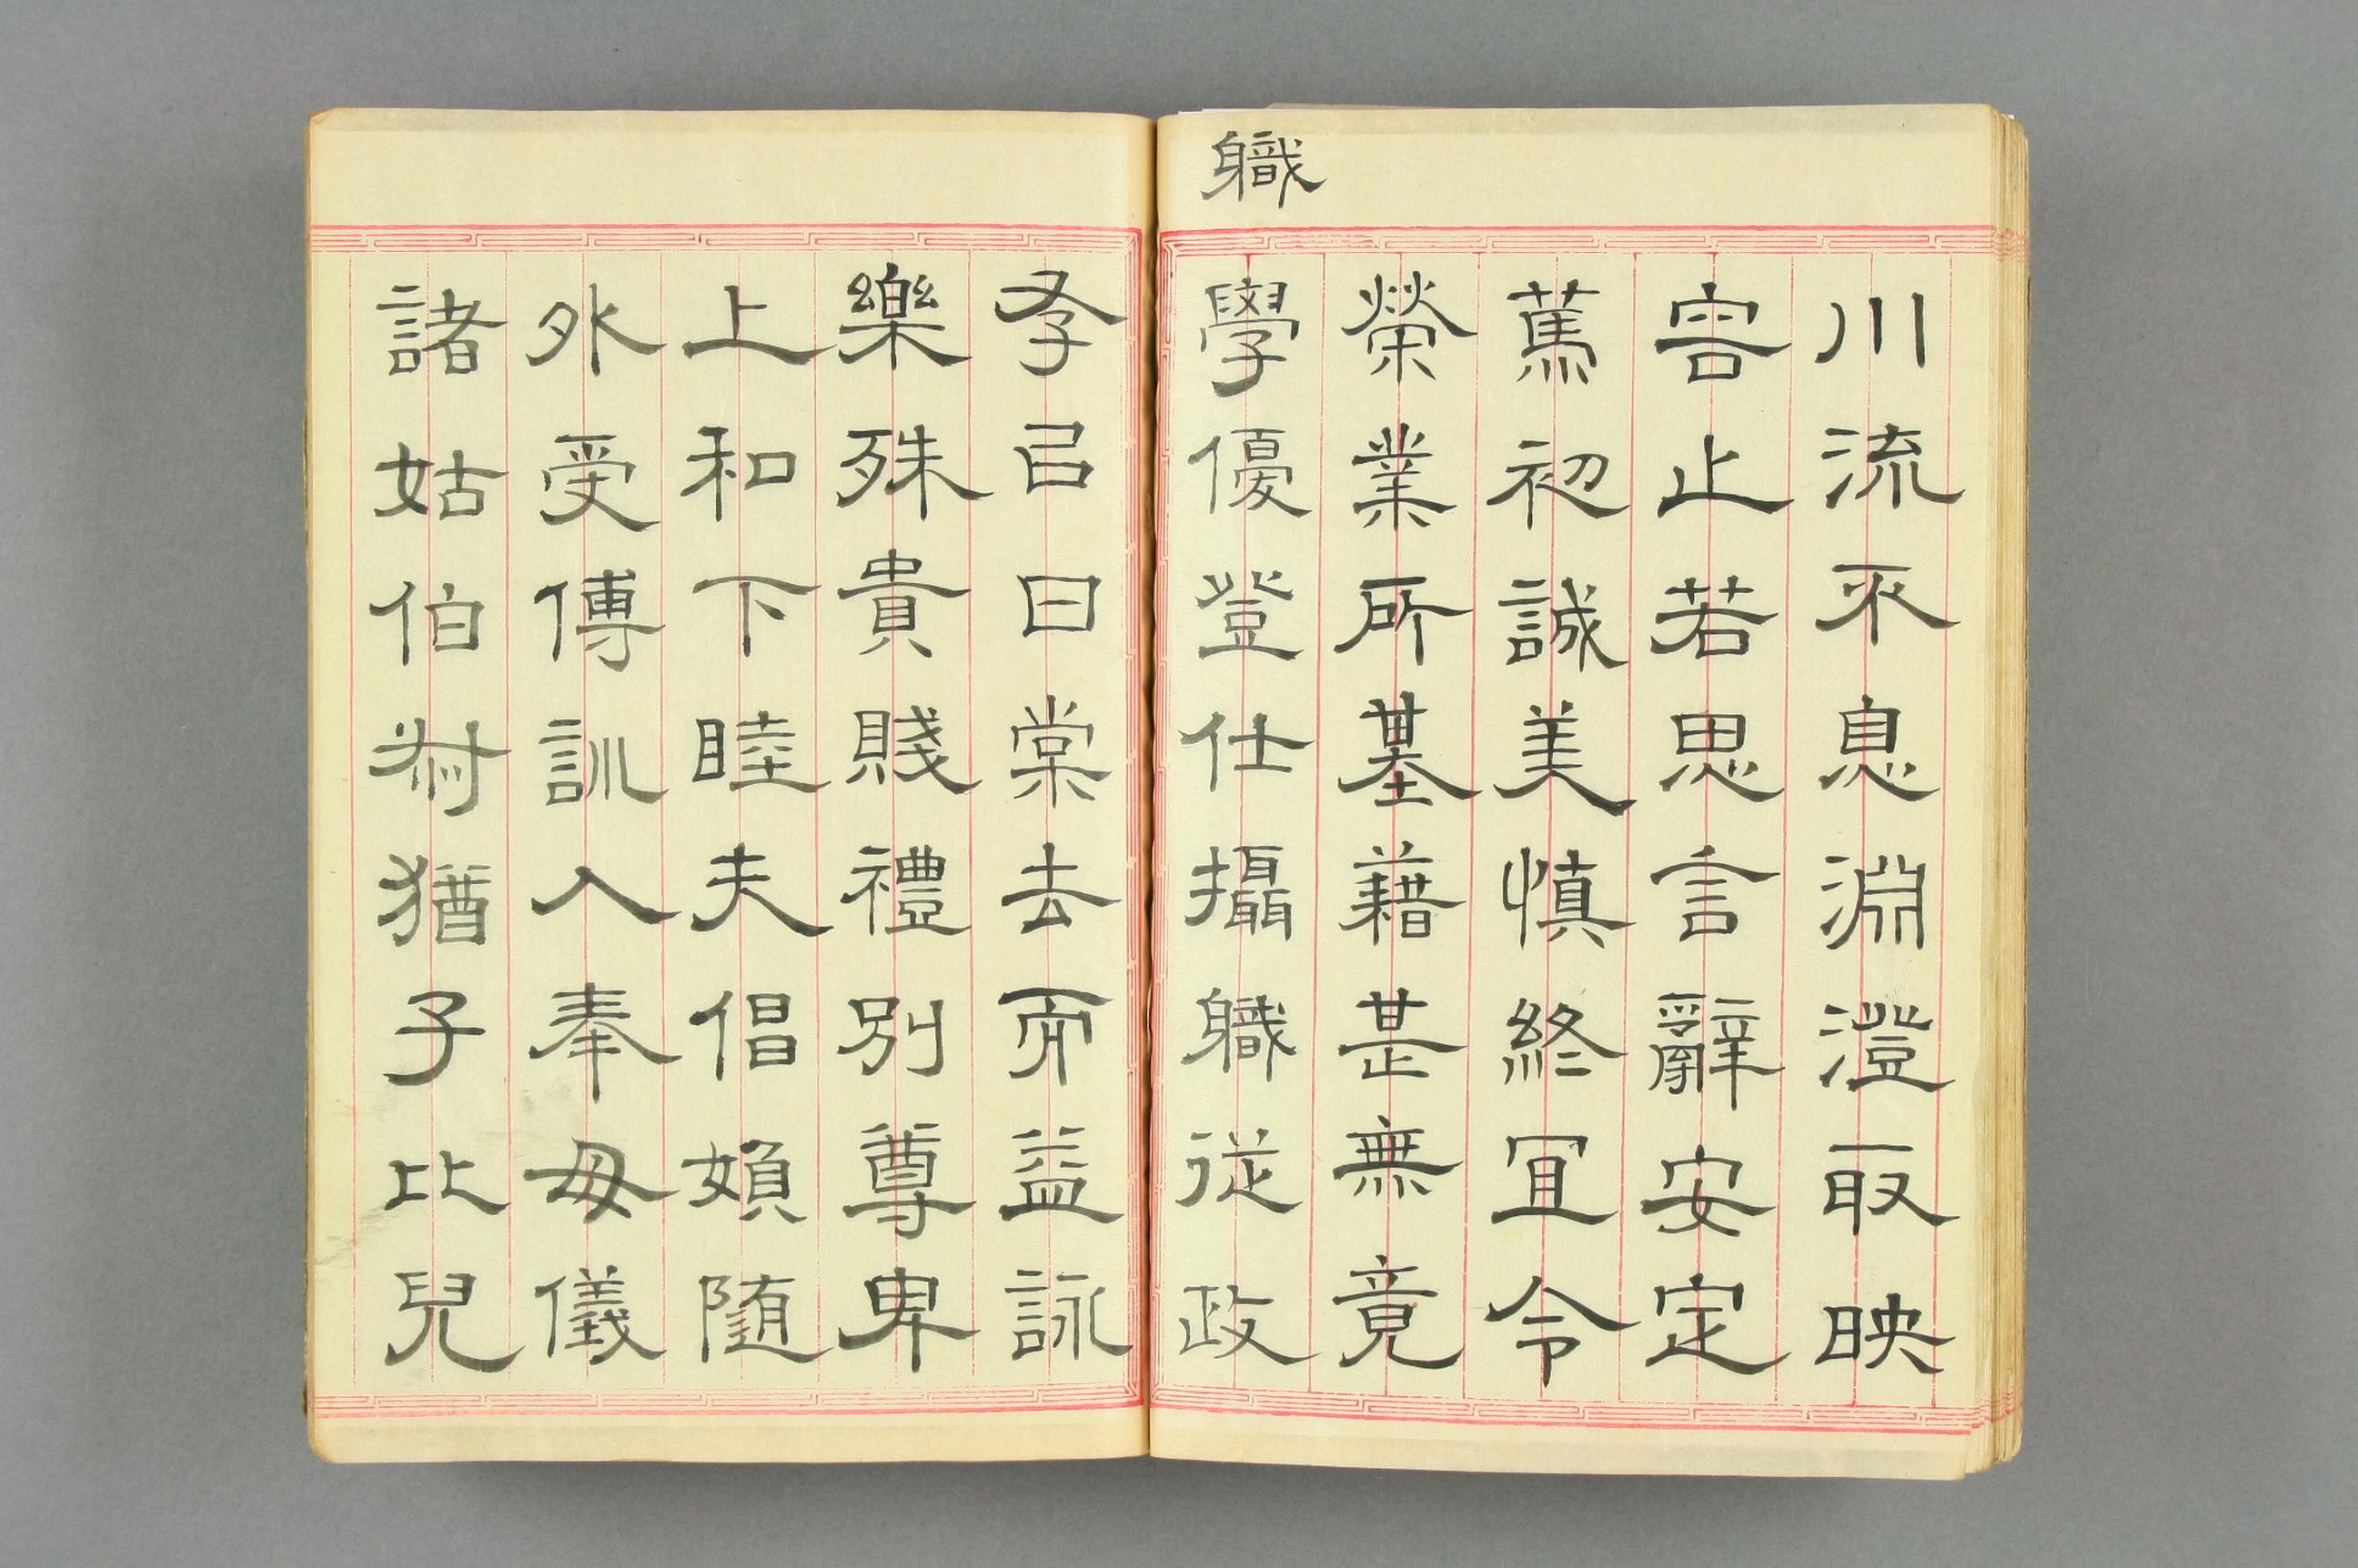 軄
川流不息淵澄取映
容止若思言辭安定
篤初誠美慎終宜令
榮業所基藉甚無竟
學優登仕攝軄從政
存㠯甘棠去而益詠
樂殊貴賤禮別尊卑
上和下睦夫倡婦隨
外受傅訓入奉母儀
諸姑伯叔猶子比兒